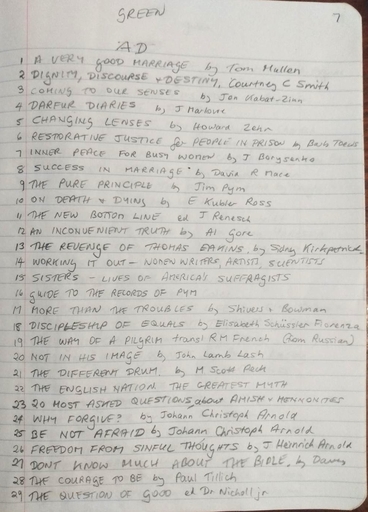 GREEN
7
AD
1 A VERY GOOD MARRIAGE by Tom Mullen
2 DIGNITY, DISCOURSE & DESTINY, Courtney C Smith
3 COMING TO OUR SENSES by Jon Kabat-Zinn
4 DARFUR DIARIES by J Marlowe
5 CHANGING LENSES by Howard Zehr
6 RESTORATIVE JUSTICE for PEOPLE IN PRISON by Barb Toews
7 INNER PEACE FOR BUSY WOMEN by J Borysenko
8 SUCCESS IN MARRIAGE by David R Mace
9 THE PURE PRINCIPLE by Jim Pym
10 ON DEATH & DYING by E Kubler Ross
11 THE NEW BOTTOM LINE ed J Renesch
12 AN INCONVENIENT TRUTH by Al Gore
13 THE REVENGE OF THOMAS EAKINS, by Sidney Kirkpatrick
14 WORKING IT OUT - WOMEN WRITERS, ARTISTS, SCIENTISTS
15 SISTERS - LIVES OF AMERICA'S SUFFRAGISTS
16 GUIDE TO THE RECORDS OF PYM
17 MORE THAN THE TROUBLES by Shivers & Bowman
18 DISCIPLESHIP OF EQUALS by Elisabeth Schüssler Fiorenza
19 THE WAY OF A PILGRIM transl R.M French (from Russian)
20 NOT IN HIS IMAGE by John Lamb Lash
21 THE DIFFERENT DRUM. by M Scott Peck
22 THE ENGLISH NATION THE GREATEST MYTH
23 20 MOST ASKED QUESTIONS about AMISH & MENNONITES
24 WHY FORGIVE? by Johann Christoph Arnold
25 BE NOT AFRAID by Johann Christoph Arnold
26 FREEDOM FROM SINFUL THOUGHTS by J Heinrich Arnold
27 DONT KNOW MUCH ABOUT THE BIBLE. by Davis
28 THE COURAGE TO BE by Paul Tillich
29 THE QUESTION OF GOOD ed Dr Nicholi jr